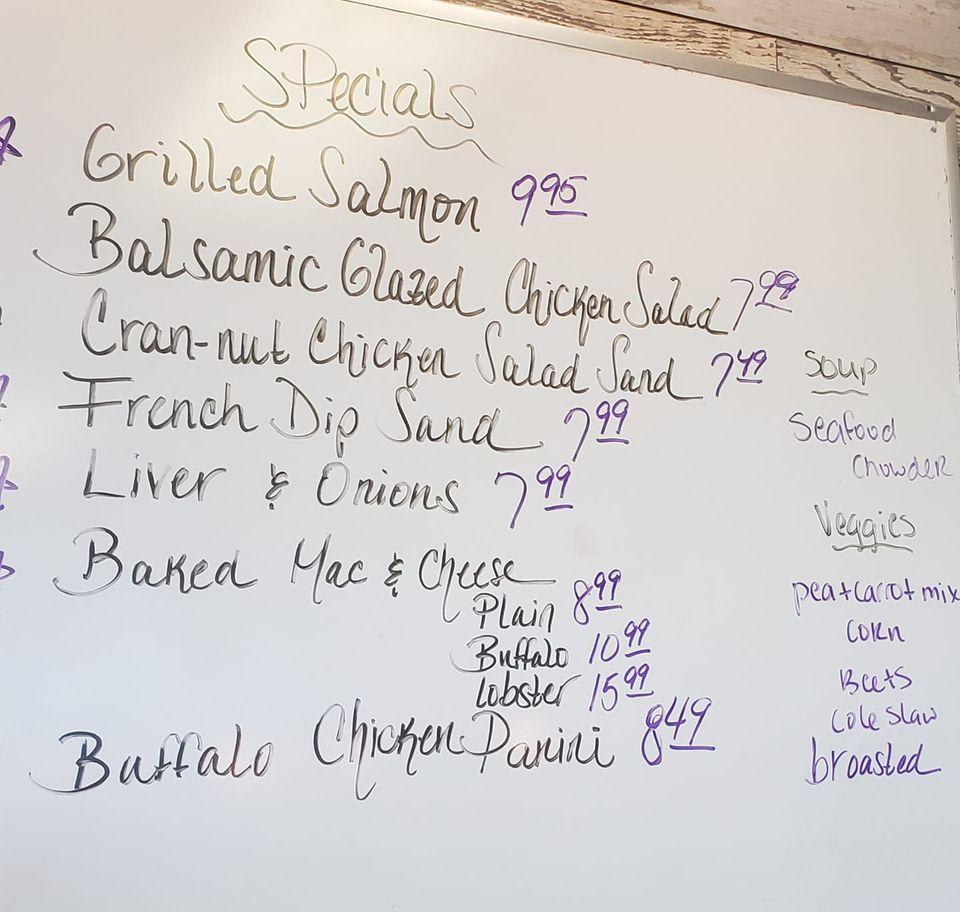 Specials
Grilled Salmon 9.95
Balsamic Glazed Chicken Salad 7.99
Cran-nut Chicken Salad Sand 7.49
French Dip Sand 7.99
Liver & Onions 7.99
Baked Mac & Cheese
Plain 8.99
Buffalo 10.99
Lobster 15.99
Buffalo Chicken Panini 8.49
Soup
Seafood
Chowder
Veggies
pea+carrot mix
corn
Beets
Cole Slaw
broasted